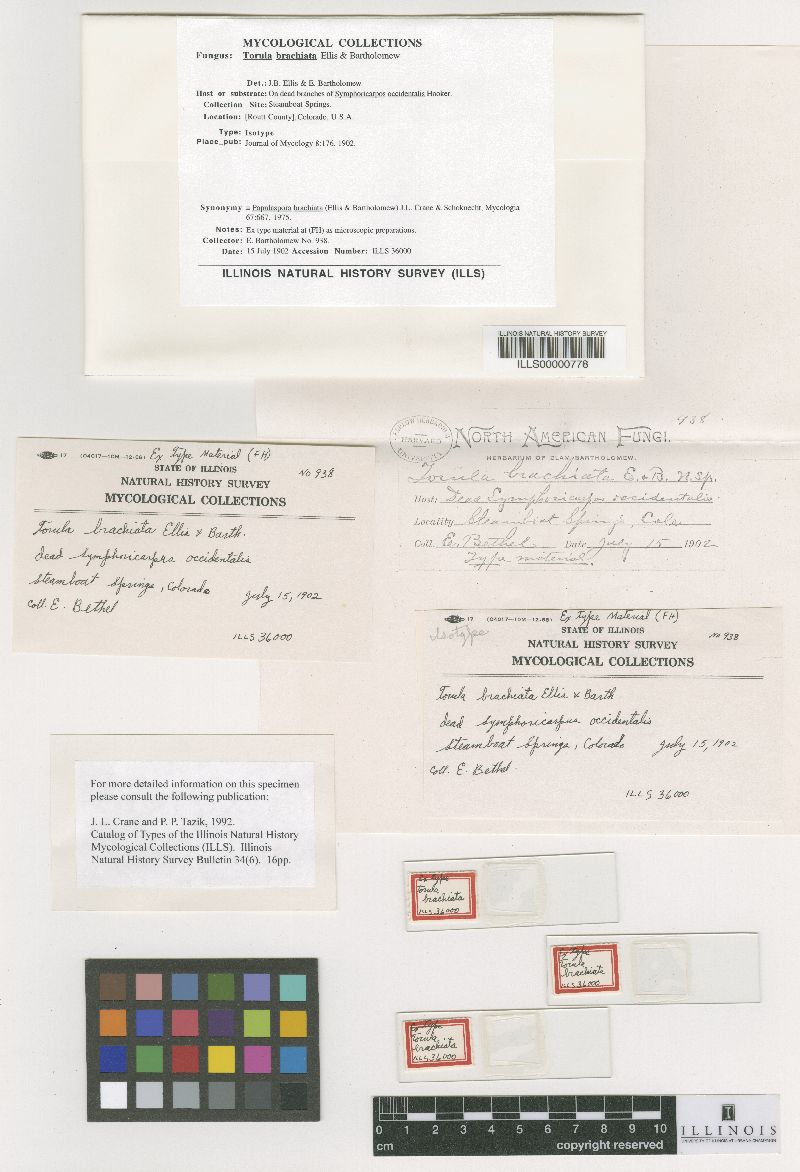 MYCOLOGICAL COLLECTIONS
Fungus: Torula brachiata Ellis & Bartholomew
Det.: J.B. Ellis & E. Bartholomew
Host or substrate: On dead branches of Symphoricarpos occidentalis Hooker.
Collection Site: Steamboat Springs.
Location: [Routt County], Colorado, U.S.A.
Type: Isotype
Place_pub: Journal of Mycology 8:176. 1902.
Synonymy = Papulaspora brachiata (Ellis & Bartholomew) J.L. Crane & Schoknecht, Mycologia
67:667, 1975.
Notes: Ex type material at (FH) as microscopic preparations.
Collector: E. Bartholomew No. 938.
Date: 15 July 1902 Accession Number: ILLS 36000
ILLINOIS NATURAL HISTORY SURVEY (ILLS)
ILLINOIS NATURAL HISTORY SURVEY
ILLS00000776
938
HARVARD
NORTH AMERICAN FUNGI.
HERBARIUM OF ELAM BARTHOLOMEW.
Torula brachiata E. & B. N.Sp.
Host: Dead Symphoricarpos occidentalis
Locality Steamboat Springs, Colo
Coll. E. Bethel. Date July 15 1902
Type material.
17 (04017—10M—12-68) Ex Type Material (FH)
STATE OF ILLINOIS
No 938
NATURAL HISTORY SURVEY
MYCOLOGICAL COLLECTIONS
Torula brachiata Ellis & Barth.
dead symphoricarpus occidentalis
Steamboat Springs, Colorado July 15, 1902
Coll. E. Bethel
ILLS 36000
17 (04017—10M—12-68) Ex Type Material (FH)
Isotype
STATE OF ILLINOIS
No 938
NATURAL HISTORY SURVEY
MYCOLOGICAL COLLECTIONS
Torula brachiata Ellis & Barth
dead symphoricarpus occidentalis
Steamboat Springs, Colorado July 15, 1902
Coll. E. Bethel.
ILLS 36000
For more detailed information on this specimen
please consult the following publication:
J. L. Crane and P. P. Tazik, 1992.
Catalog of Types of the Illinois Natural History
Mycological Collections (ILLS). Illinois
Natural History Survey Bulletin 34(6). 16pp.
Ex type
Torula
brachiata
ILLS 36000
Ex type
Torula
brachiata
ILLS 36000
Ex type
Torula
brachiata
ILLS 36000
0 1 2 3 4 5 6 7 8 9 10
cm
copyright reserved
I
ILLINOIS
UNIVERSITY OF ILLINOIS AT URBANA-CHAMPAIGN